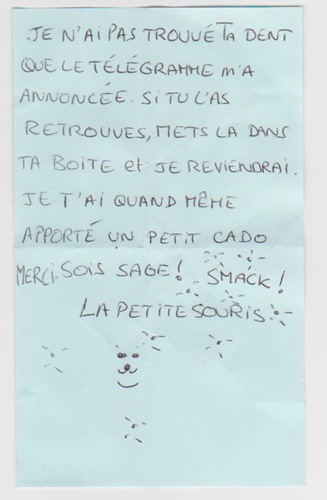 JE N'AI PAS TROUVÉ TA DENT
QUE LE TÉLÉGRAMME M'A
ANNONCÉE. SI TU L'AS
RETROUVES, METS LA DANS
TA BOITE et JE REVIENDRAI.
JE T'AI QUAND MÊME
APPORTÉ UN PETIT CADO
MERCI. SOIS SAGE! SMACK!
LA PETITE SOURIS